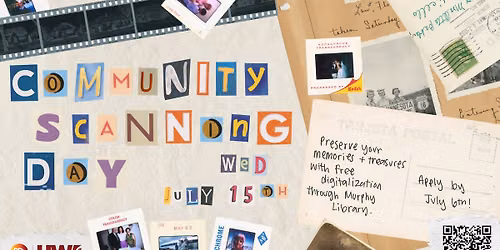 COMMUNITY
SCANNING
DAY
WED
JULY 15TH
Preserve your
memories + treasures
with free
digitalization
through Murphy
Library.
Apply by
July 6th!